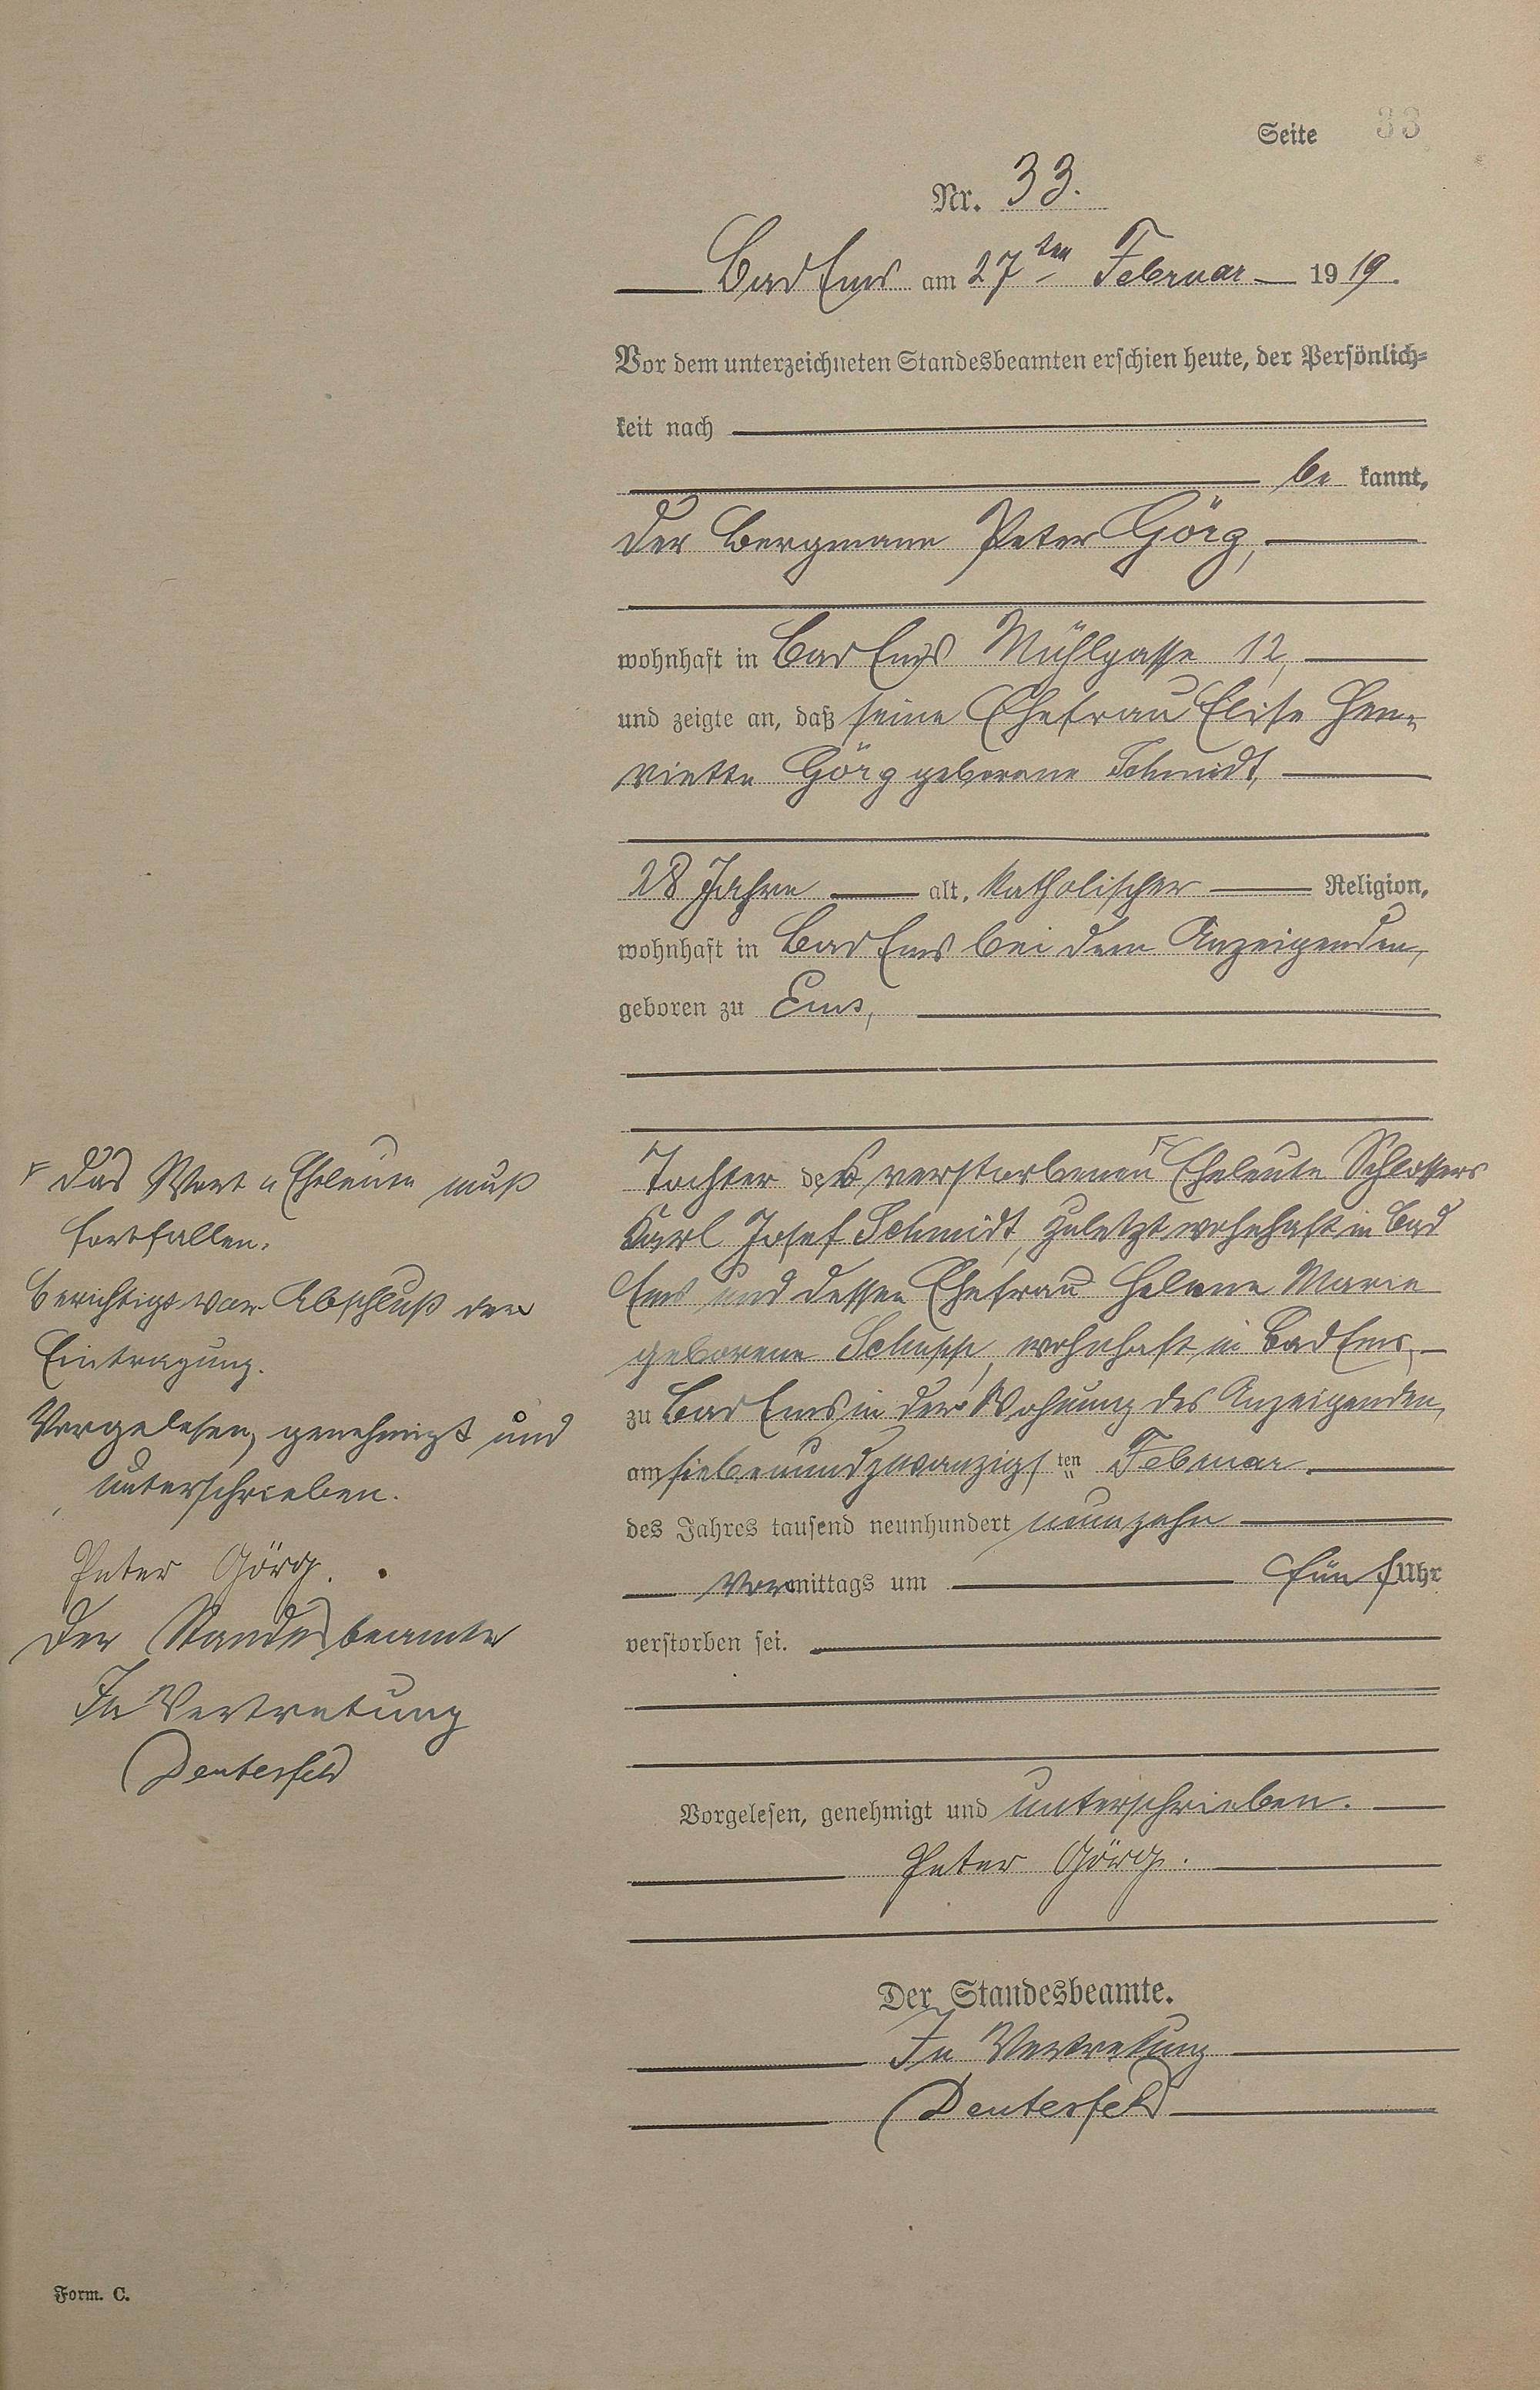 Seite 33
Nr. 33.
Bad Ems am 27ten Februar 1919.
Vor dem unterzeichneten Standesbeamten erschien heute, der Persönlich=
keit nach
be kannt,
der Bergmann Peter Görg,
wohnhaft in Bad Ems Mühlgasse 12,
und zeigte an, daß seine Ehefrau Elise Hen-
riette Görg geborene Schmidt,
28 Jahre alt, katholischer Religion,
wohnhaft in Bad Ems bei dem Anzeigenden,
geboren zu Ems,
Tochter des verstorbenen Eheleute Schlossers
Karl Josef Schmidt, zuletzt wohnhaft in Bad
Ems und dessen Ehefrau Helene Marie
geborene Schupp, wohnhaft in Bad Ems,
zu Bad Ems in der Wohnung des Anzeigenden,
am siebenundzwanzigsten Februar
des Jahres tausend neunhundert neunzehn
Vormittags um fünf Uhr
verstorben sei.
Vorgelesen, genehmigt und unterschrieben.
Peter Görg.
Der Standesbeamte.
In Vertretung
Deutesfeld
Das Wort "Eheleute muß
fortfallen.
Berichtigt vor Abschluß der
Eintragung.
Vorgelesen, genehmigt und
unterschrieben.
Peter Görg.
Der Standesbeamte
In Vertretung
Deutesfeld
Form. C.